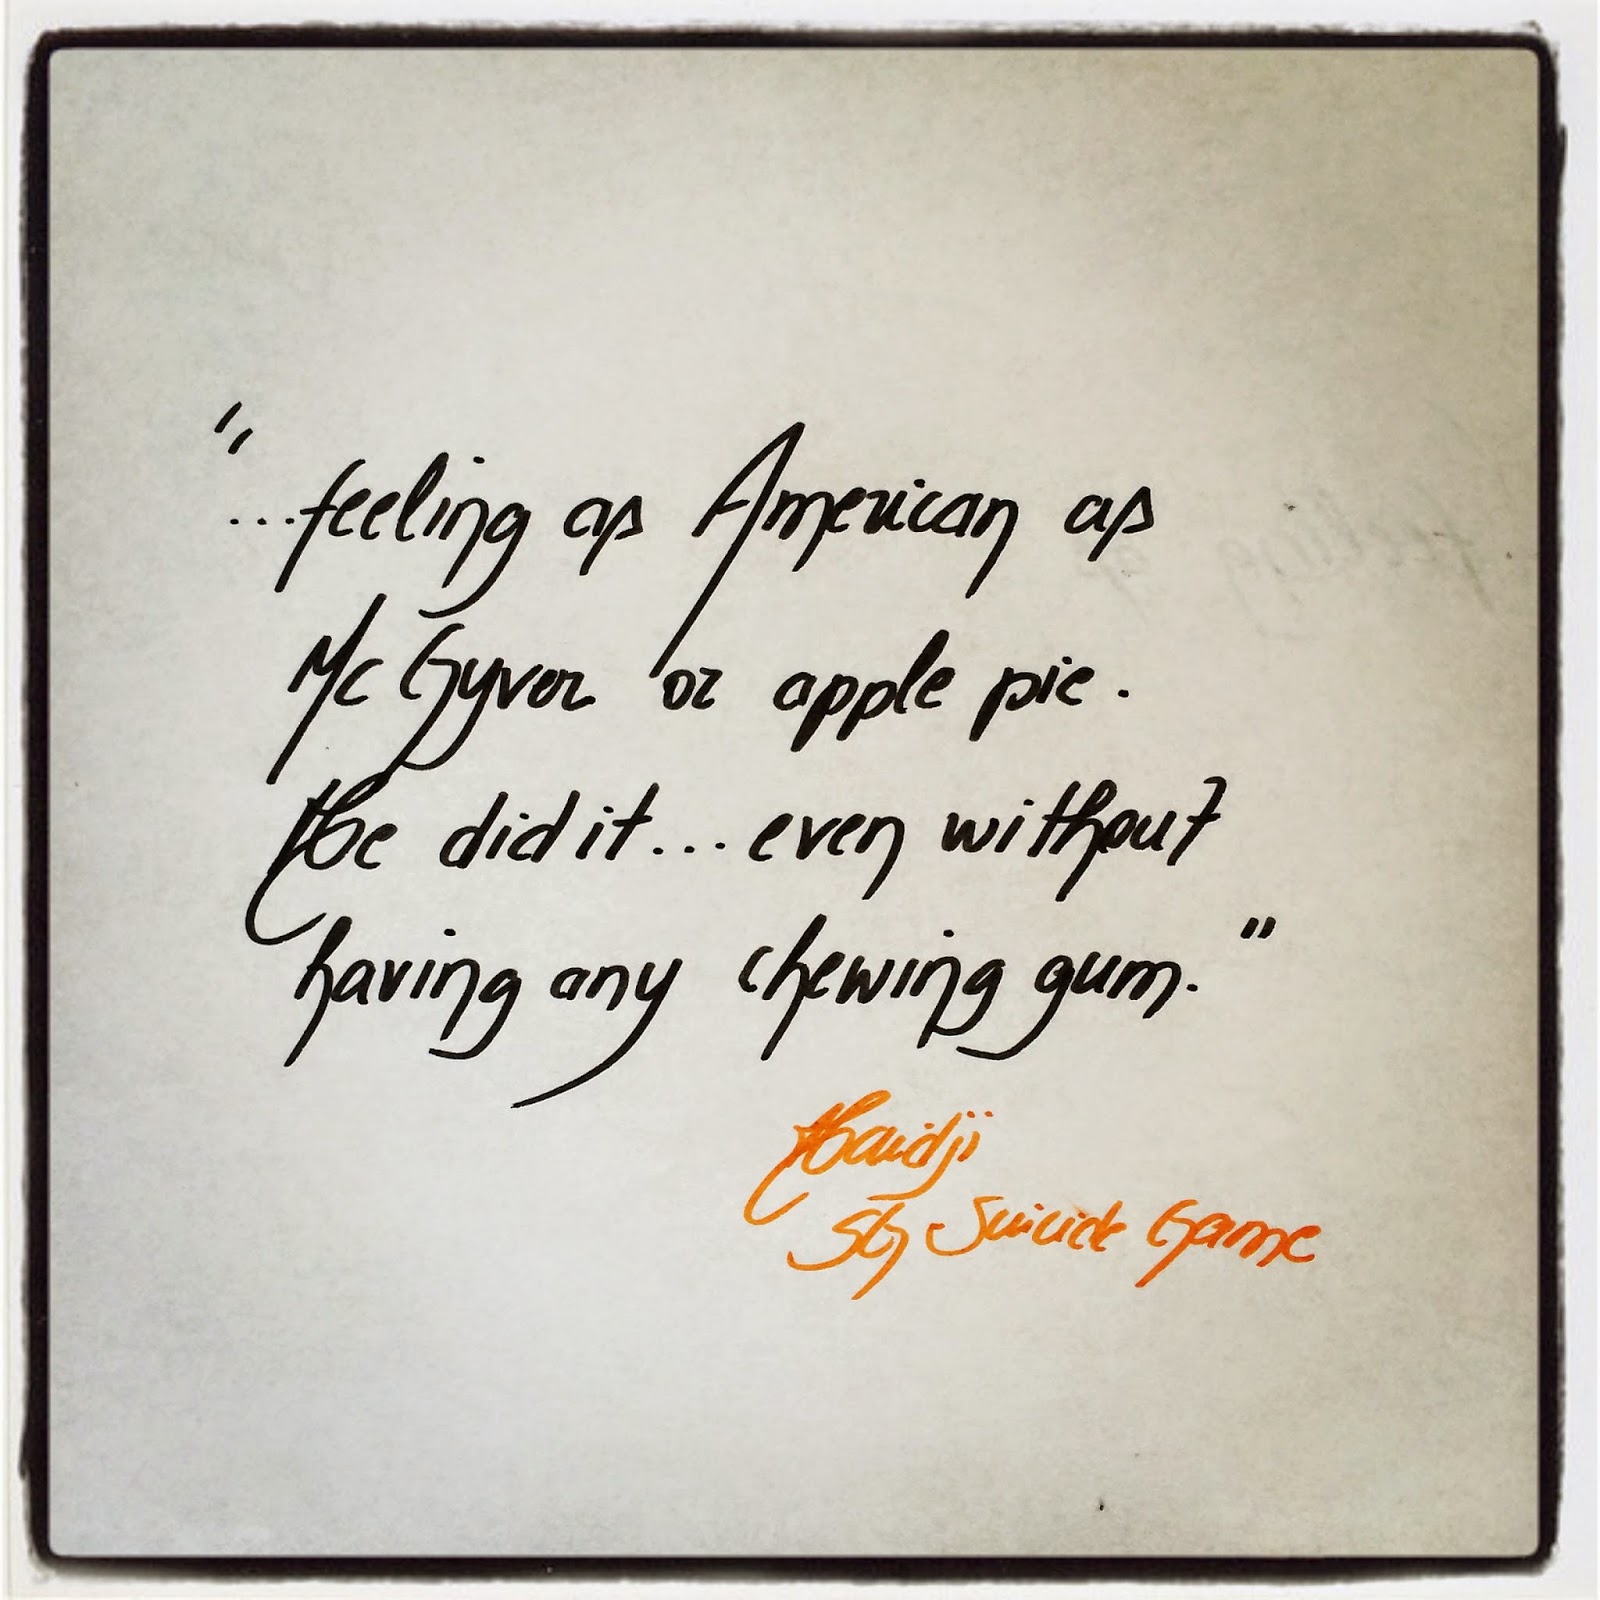 "...feeling as American as
McGyver or apple pie.
He did it... even without
having any chewing gum."
Haidji
SG Suicide Game